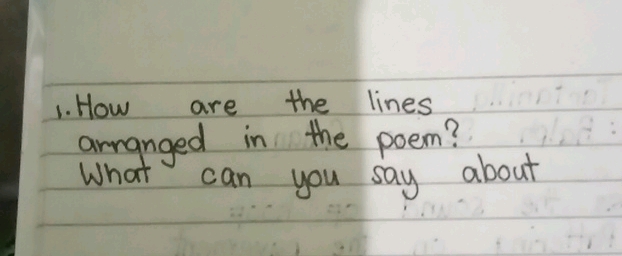 1. How are the lines
arranged in the poem?
What can you say about